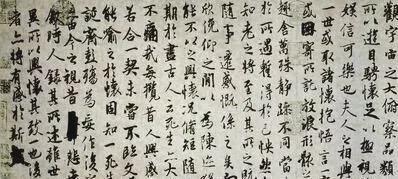 觀宇宙之大俯察品類
所以遊目騁懷足以極視
娛信可樂也夫人之相與
一世或取諸懷抱悟言一
或因寄所託放浪形骸
趣舍萬殊靜躁不同當
於所遇暫得於己怏然
知老之將至及其所之既
隨事遷感慨係之矣
欣俛仰之閒以為陳迹
能不以之興懷況脩短隨
期於盡古人云死生亦大
不痛哉每攬昔人興感
若合一契未嘗不臨文
能喻之於懷固知一死生
誕齊彭殤為妄作後
由今之視昔
敘時人錄其所述雖世
異所以興懷其致一也後
者亦將有感於斯